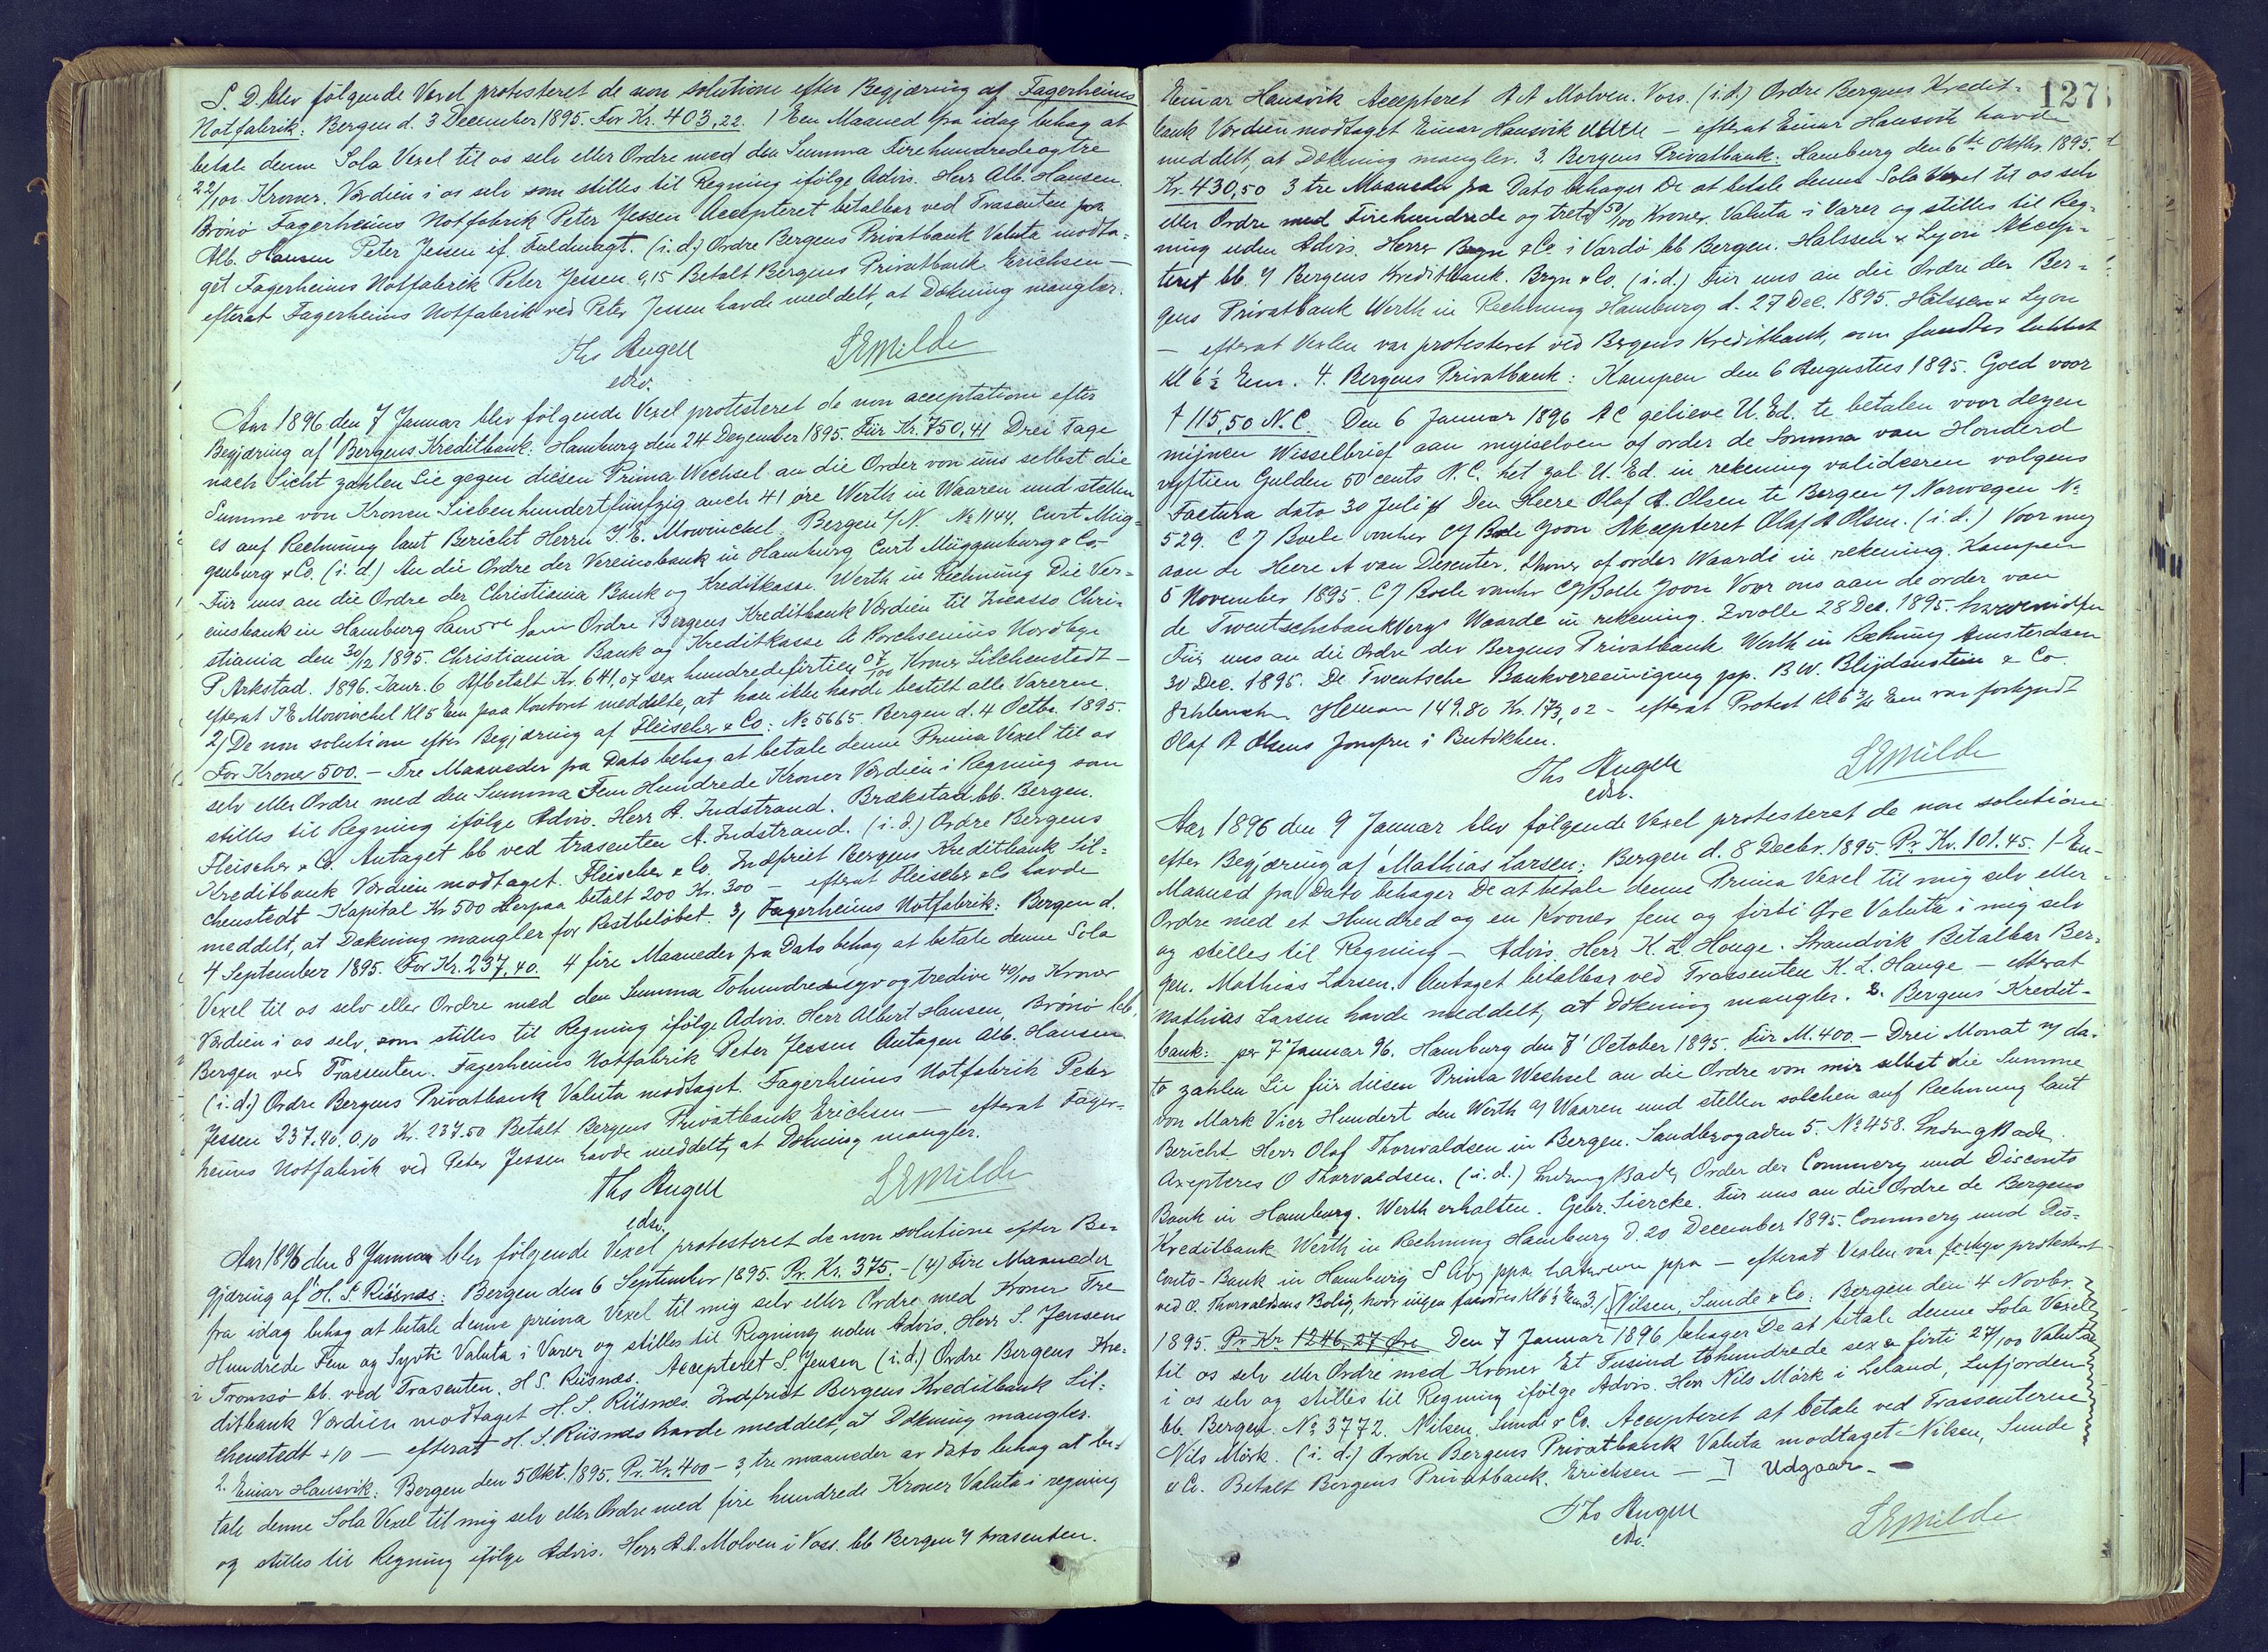 S. D. blev følgende Vexel protesteret de non solutione efter Begjæring af Fagerheims
Notfabrik: Bergen d. 3 December 1895. For Kr. 403,22. 1 Een Maaned fra idag behag at
betale denne Sola Vexel til os selv eller Ordre med den Summa Firehundredeogtre
22/100 Kroner. Værdien i os selv som stilles til Regning ifølge Advis. Herr Alb. Hansen.
Brönö Fagerheims Notfabrik Peter Jessen Accepteret betalbar ved Trasenten
Alb. Hansen Peter Jessen if. Fuldmagt. (i.d.) Ordre Bergens Privatbank Valuta modta-
get Fagerheims Notfabrik Peter Jessen. 9,15 Betalt Bergens Privatbank Erichsen —
efterat Fagerheims Notfabrik ved Peter Jessen havde meddelt, at Dækning mangler.
Ths Angell
LEMilde
Aar 1896 den 7 Januar blev følgende Vexel protesteret de non acceptatione efter
Begjæring af Bergens Kreditbank: Hamburg den 24 Dezember 1895. Für Kr. 750,41 Drei Tage
nach Sicht zahlen Sie gegen diesen Prima Wechsel an die Order von uns selbst die
Summe von Kronen Siebenhundertfünfzig auch 41 öre Werth in Waaren und stellen
es auf Rechnung laut Bericht Herrn J. E. Mowinckel. Bergen i/N. No 1144. Curt Müg-
genburg & Co. (i. d.) An die Ordre der Vereinsbank in Hamburg Curt Müggenburg & Co.
Für uns an die Ordre der Christiania Bank og Kreditkasse. Werth in Rechnung Die Ver-
einsbank in Hamburg Ordre Bergens Kreditbank Værdien til Incasso Chri-
stiania den 30/12 1895. Christiania Bank og Kreditkasse Nordbye
P Arkstad. 1896. Janr. 6 Afbetalt Kr. 641,07 sex hundredefirtien 07/100 Kroner Lilchenstedt —
efterat J E Mowinckel Kl 5 Em paa Kontoret meddelte, at han ikke havde bestilt alle Varerne.
2) De non solutione efter Begjæring af Fleischer & Co: No 5665. Bergen d. 4 Octbr. 1895.
For Kroner 500. — Tre Maaneder fra Dato behag at betale denne Prima Vexel til os
selv eller Ordre med den Summa Fem Hundrede Kroner Værdien i Regning som
stilles til Regning ifølge Advis. Herr A. Indstrand. Brækstad bb. Bergen.
Fleischer & Co. Antaget bb ved trasenten A. Indstrand. (i. d.) Ordre Bergens
Kreditbank Værdien modtaget. Fleischer & Co. Indfriet Bergens Kreditbank Lil-
chenstedt — Kapital Kr 500 derpaa betalt 200 Kr. 300 — efterat Fleischer & Co havde
meddelt, at Dækning mangler for Restbeløbet. 3) Fagerheims Notfabrik: Bergen d.
4 September 1895. For Kr. 237,40. 4 fire Maaneder fra Dato behag at betale denne Sola
Vexel til os selv eller Ordre med den Summa Tohundredesyvogtredive 40/100 Kroner
Værdien i os selv, som stilles til Regning ifølge Advis. Herr Albert Hansen, Brönö bb,
Bergen ved Trassenten. Fagerheims Notfabrik Peter Jessen Antagen Alb. Hansen.
(i.d.) Ordre Bergens Privatbank Valuta modtaget. Fagerheims Notfabrik Peter
Jessen 237.40. 0.10 Kr. 237.50 Betalt Bergens Privatbank Erichsen — efterat Fager-
heims Notfabrik ved Peter Jessen havde meddelt, at Dækning mangler.
Ths Angell
LEMilde
Aar 1896 den 8 Januar blev følgende Vexel protesteret de non solutione efter Be-
gjæring af H. S. Riisnæs: Bergen den 6 September 1895. Pr. Kr. 375. — (4) Fire Maaneder
fra idag behag at betale denne prima Vexel til mig selv eller Ordre med Kroner Tre
Hundrede Fem og Syvti Valuta i Varer og stilles til Regning uden Advis. Herr S. Jensen
i Tromsø bb. ved Trasenten. H. S. Riisnæs. Accepteret S. Jensen (i.d.) Ordre Bergens Kre-
ditbank Værdien modtaget H. S. Riisnæs. Indfriet Bergens Kreditbank Lil-
chenstedt +10 — efterat H. S. Riisnæs havde meddelt, at Dækning mangler.
2. Einar Hansvik: Bergen den 5 Okt. 1895. Pr. Kr. 400 — 3, tre maaneder av dato behag at be-
tale denne Sola Vexel til mig selv eller Ordre med fire hundrede Kroner Valuta i regning
og stilles til Regning ifølge Advis. Herr A. A. Molven i Voss. bb Bergen y trasenten.
127
Einar Hansvik Accepteret A A Molven. Voss. (i.d.) Ordre Bergens Kredit-
bank Værdien modtaget Einar Hansvik — efterat Einar Hansvik havde
meddelt, at Dækning mangler. 3. Bergens Privatbank: Hamburg den 6te Oktbr. 1895.
Kr. 430,50 3 tre Maaneder fra Dato behager De at betale denne Sola Vexel til os selv
eller Ordre med Firehundrede og treti 50/100 Kroner Valuta i Varer og stilles til Reg-
ning uden Advis. Herrer Bryn & Co. i Vardø bb Bergen. Halssen & Lyon Accep-
teret bb. y Bergens Kreditbank. Bryn & Co. (i.d.) Für uns an die Ordre der Ber-
gens Privatbank Werth in Rechnung Hamburg d. 27 Dec. 1895. Halssen & Lyon
— efterat Vexlen var protesteret ved Bergens Kreditbank, som fandtes lukket
Kl 6 1/2 Em. 4. Bergens Privatbank: Kampen den 6 Augustus 1895. Goed voor
f 115,50 N. C. Den 6 Januar 1896 AC gelieve U. Ed. te betalen voor dezen
mijnen Wisselbrief aan mijzelven of order de Somma van Honderd
vijftien Gulden 50 cents N. C. het zal U. Ed. in rekening valideeren volgens
Factura dato 30 Juli Den Heere Olaf A. Olsen te Bergen y Norwegen No
529. C J Boele C J Boele Zoon Akcepteret Olaf A Olsen. (i. d.) Voor mij
aan de Heere A van Desenter, of order Waarde in rekening. Kampen
5 November 1895. C J Boele C J Boele Zoon Voor ons aan de order van
de Twentschebankverg Waarde in rekening. Zwolle 28 Dec. 1895.
Für uns an die Ordre der Bergens Privatbank Werth in Rechnung Amsterdam
30 Dec. 1895. De Twentsche Bankvereeniging pp. B W. Blijdenstein & Co.
149.80 Kr. 173,02 — efterat Protest Kl 6 3/4 Em var forkyndt
Olaf A Olsens Jomfru i Butikken.
Ths Angell
LEMilde
Aar 1896 den 9 Januar blev følgende Vexel protesteret de non solutione
efter Begjæring af Mathias Larsen: Bergen d. 8 Decbr. 1895. Pr. Kr. 101.45. 1-En-
Maaned fra Dato behager De at betale denne Prima Vexel til mig selv eller
Ordre med et Hundred og en Kroner fem og firti Øre Valuta i mig selv
og stilles til Regning — Advis. Herr K. L. Hauge. Strandvik Betalbar Ber-
gen. Mathias Larsen. Antaget betalbar ved Trassenten K. L. Hauge — efterat
Mathias Larsen havde meddelt, at Dækning mangler. 2. Bergens Kredit-
bank: pr 7 Januar 96. Hamburg den 7 October 1895. Für M. 400 — Drei Monat n/ da-
to zahlen Sie für diesen Prima Wechsel an die Ordre von mir selbst die Summe
von Mark Vier Hundert den Werth a/ Waaren und stellen solchen auf Rechnung laut
Bericht Herr Olaf Thorvaldsen in Bergen. Sandbrogaden 5. No 458. Ludwig Bade.
Axepteres O Thorvaldsen. (i. d.) Ludwig Bade, Order der Commerz und Disconto
Bank in Hamburg. Werth erhalten. Gebr. Siercke. Für uns an die Ordre de Bergens
Kreditbank Werth in Rechnung Hamburg d. 20 December 1895. Commerz und Dis-
conto-Bank in Hamburg ppa ppa — efterat Vexlen var protesteret
ved O. Thorvaldsens Bolig, hvor ingen fandtes Kl 6 1/2 Em. 3. / [Nilsen, Sunde & Co: Bergen den 4 Novbr.
1895. Pr Kr. 1246,27 Øre Den 7 Januar 1896 behager De at betale denne Sola Vexel
til os selv eller Ordre med Kroner Et Tusind tohundrede sex & firti 27/100 Valuta
i os selv og stilles til Regning ifølge Advis. Herr Nils Mørk i Leland, Lufjorden
bb. Bergen. No 3772. Nilsen, Sunde & Co. Accepteret at betale ved Trassenterne
Nils Mörk. (i. d.) Ordre Bergens Privatbank Valuta modtaget — Nilsen, Sunde
& Co. Betalt Bergens Privatbank. Erichsen — ] Udgaar. —
Ths Angell
LEMilde